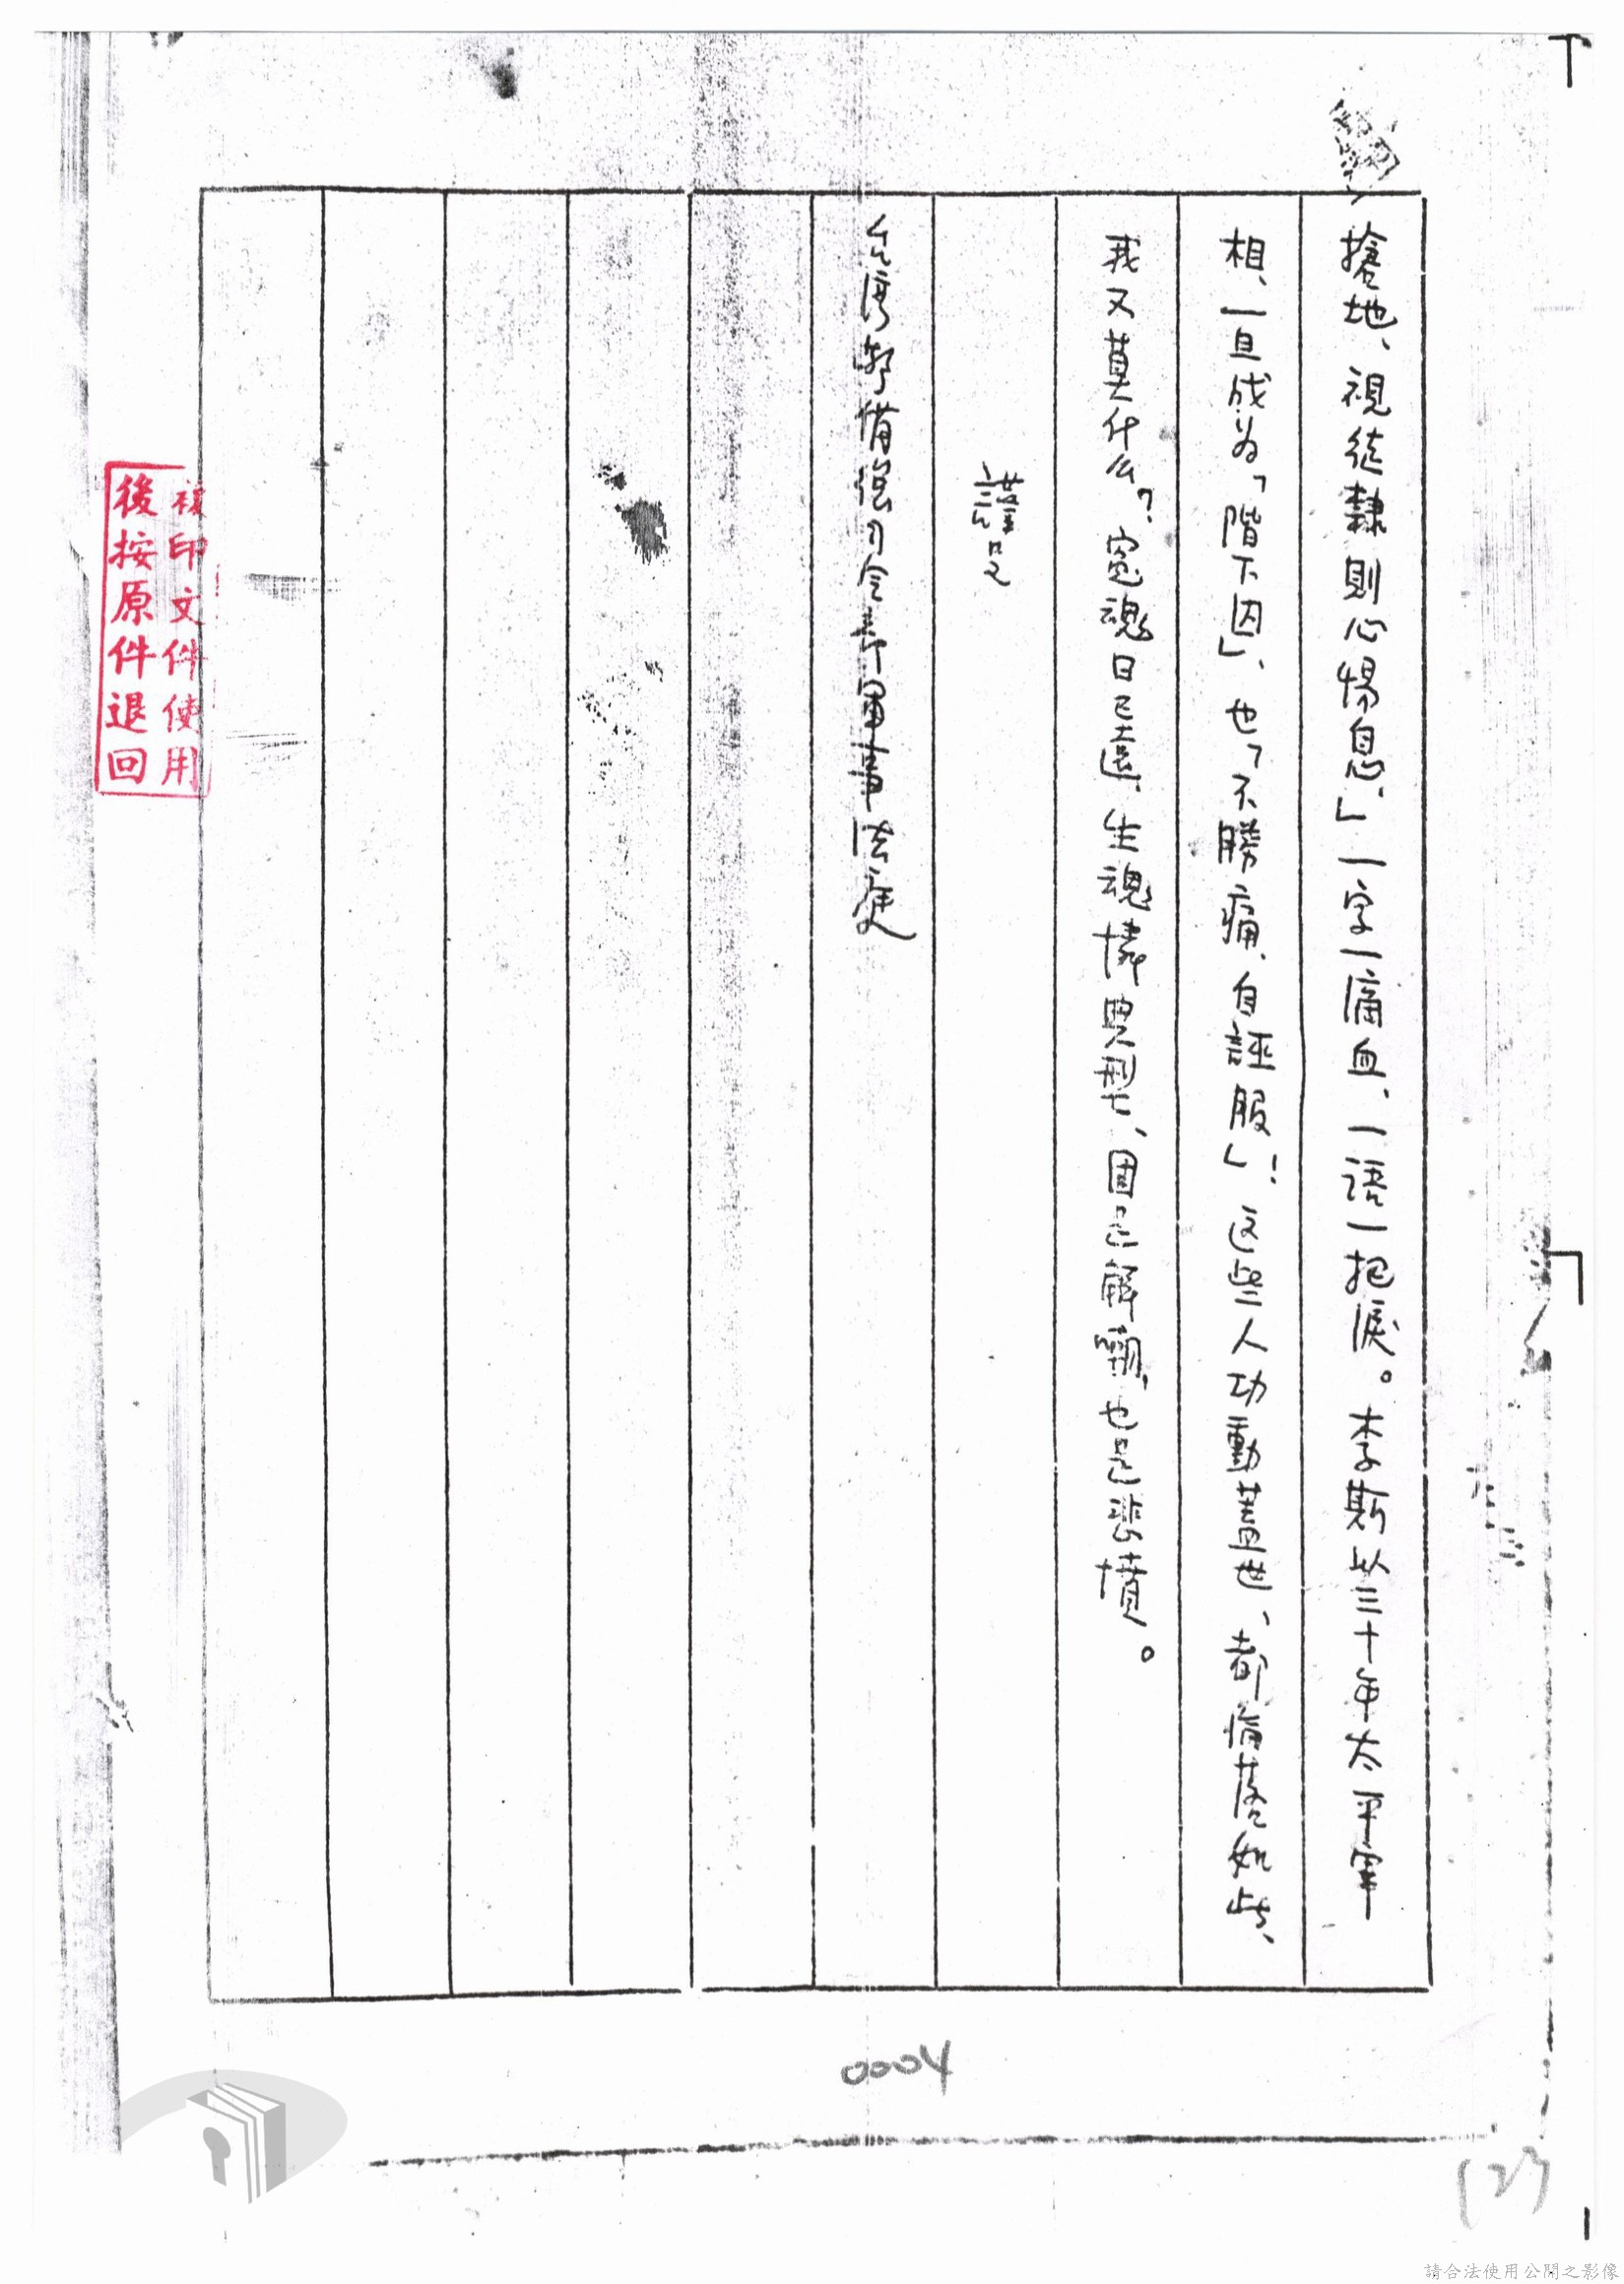 搶地、視徒隸則心惕息、」一字一痛血、一語一把淚。李斯以三十年太平宰
相、一旦成为「階下囚」、也「不勝痛、自誣服」！这些人功動蓋世、都倫落如此、
我又莫什么？冤魂日已遠、生魂憐典型、固是解嘲、也是悲憤。
謹呈
台湾警備總司令部軍事法庭
複印文件使用
後按原件退回
0004
127
請合法使用公開之影像